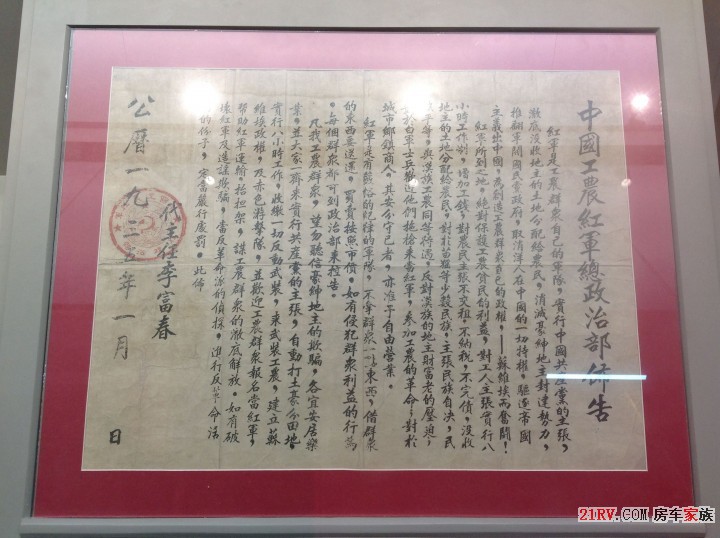 中國工農紅軍總政治部佈告
紅軍是工農群眾自己的軍隊，實行中國共產黨的主張，
澈底沒收地主的土地分配給農民，消滅豪紳地主封建勢力，
推翻軍閥國民黨政府，取消洋人在中國的一切持權，驅逐帝國
主義出中國，為創造工農群眾自己的政權，——蘇維埃而奮鬥！
紅軍所到之地，絕對保護工農貧民的利益，對工人主張實行八
小時工作制，增加工錢，對農民主張不交租，不納稅，不完債，沒收
地主的土地分配給農民，對於苗猺等少數民族，主張民族自決，民
族平等，與漢族工農同等待遇，反對漢族的地主財富老的壓迫，
對於白軍士兵歡迎他們拖槍來當紅軍，參加工農的革命，對於
城市鄉鎮商人，其安分守己者，亦准予自由營業。
紅軍是有嚴格的紀律的軍隊，不拿群眾一點東西，借群眾
的東西要送還，買賣按照市價，如有侵犯群眾利益的行為
，每個群眾都可到政治部來控告。
凡我工農群眾，望勿聽信豪紳地主的欺騙，各宜安居樂
業，並大家一齊來實行共產黨的主張，自動打土豪分田地，
實行八小時工作，收繳一切反動武裝，來武裝工農，建立蘇
維埃政權，及赤色游擊隊，並歡迎工農群眾報名當紅軍，
幫助紅軍運輸，抬担架，謀工農群眾的澈底解放。如有破
壞紅軍及造謠欺騙，當反革命派的偵探，進行反革命活
動的份子，定當嚴行處罰。此佈
代主任李富春
公曆一九三五年一月 日
21RV.COM 房车家族